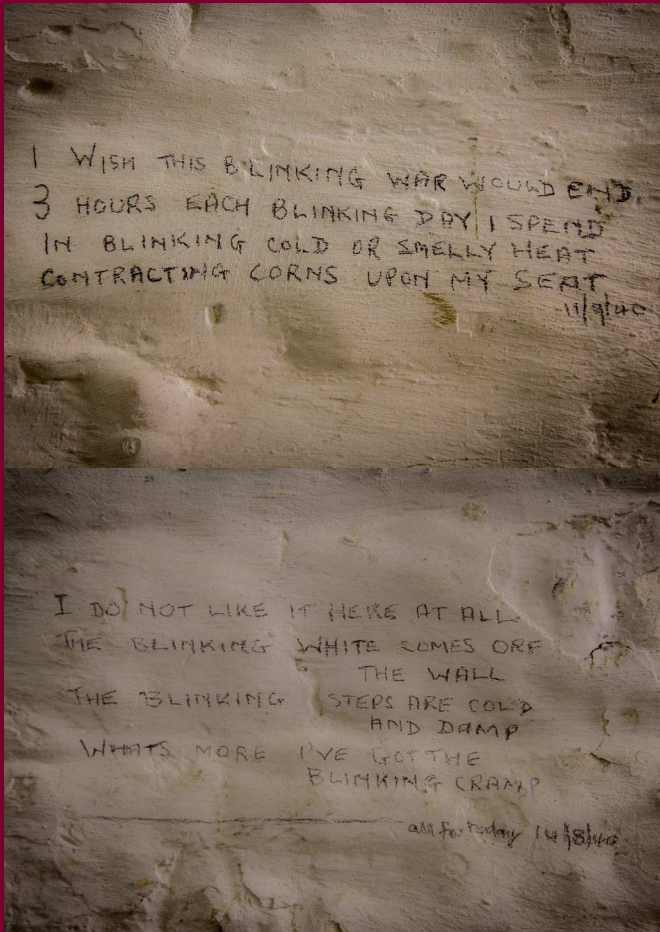 I WISH THIS BLINKING WAR WOULD END
3 HOURS EACH BLINKING DAY I SPEND
IN BLINKING COLD OR SMELLY HEAT
CONTRACTING CORNS UPON MY SEAT
11/9/40
I DO NOT LIKE IT HERE AT ALL
THE BLINKING WHITE COMES OFF
THE WALL
THE BLINKING STEPS ARE COLD
AND DAMP
WHATS MORE I'VE GOT THE
BLINKING CRAMP
all for today 14/8/40